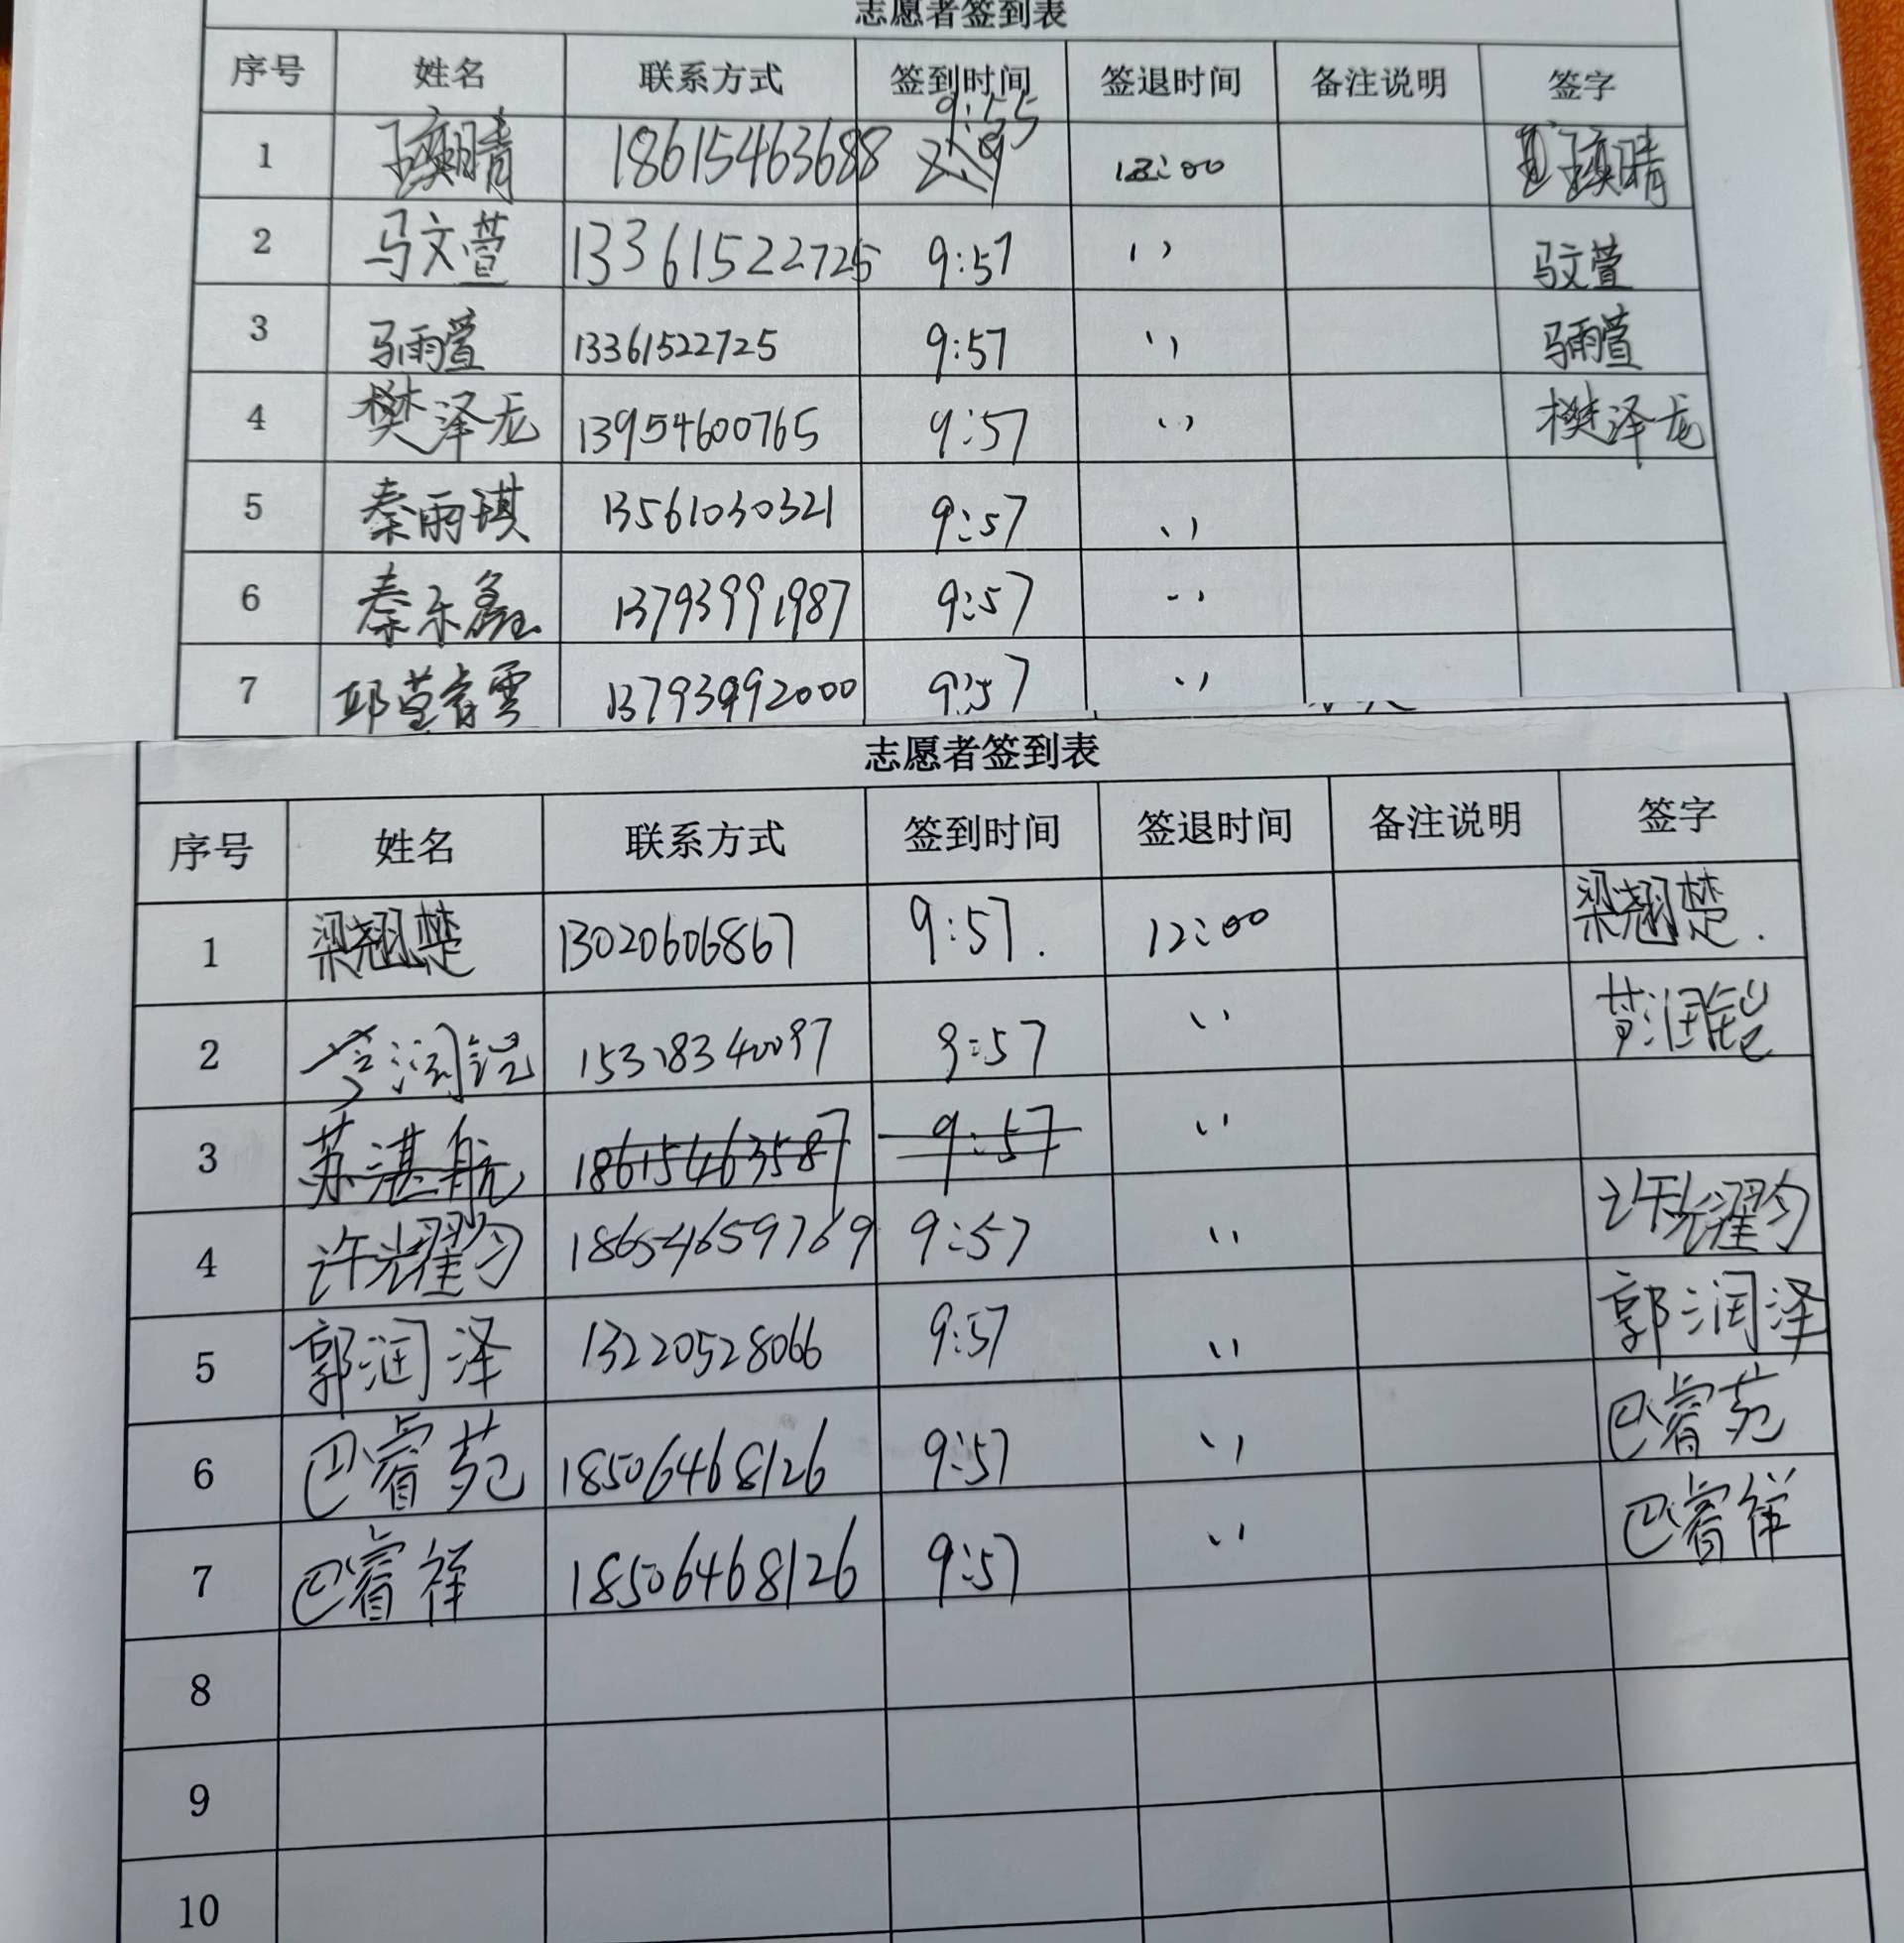 志愿者签到表
序号 姓名 联系方式 签到时间 签退时间 备注说明 签字
1 18615463688 9:55 12:00
2 马文萱 13361522725 9:57 〃 马文萱
3 马雨萱 13361522725 9:57 〃 马雨萱
4 樊泽龙 13954600765 9:57 〃 樊泽龙
5 秦雨琪 13561030321 9:57 〃
6 秦乐鑫 13793991987 9:57 〃
7 邱莹睿雲 13793992000 9:57 〃
志愿者签到表
序号 姓名 联系方式 签到时间 签退时间 备注说明 签字
1 梁翘楚 13020606867 9:57. 12:00 梁翘楚.
2 9:57 〃
3 苏湛航 18615463587 9:57 〃
4 许光耀匀 18654659769 9:57 〃 许光耀匀
5 郭润泽 13220528066 9:57 〃 郭润泽
6 巴睿苑 18506468126 9:57 〃 巴睿苑
7 巴睿祥 18506468126 9:57 〃 巴睿祥
8
9
10